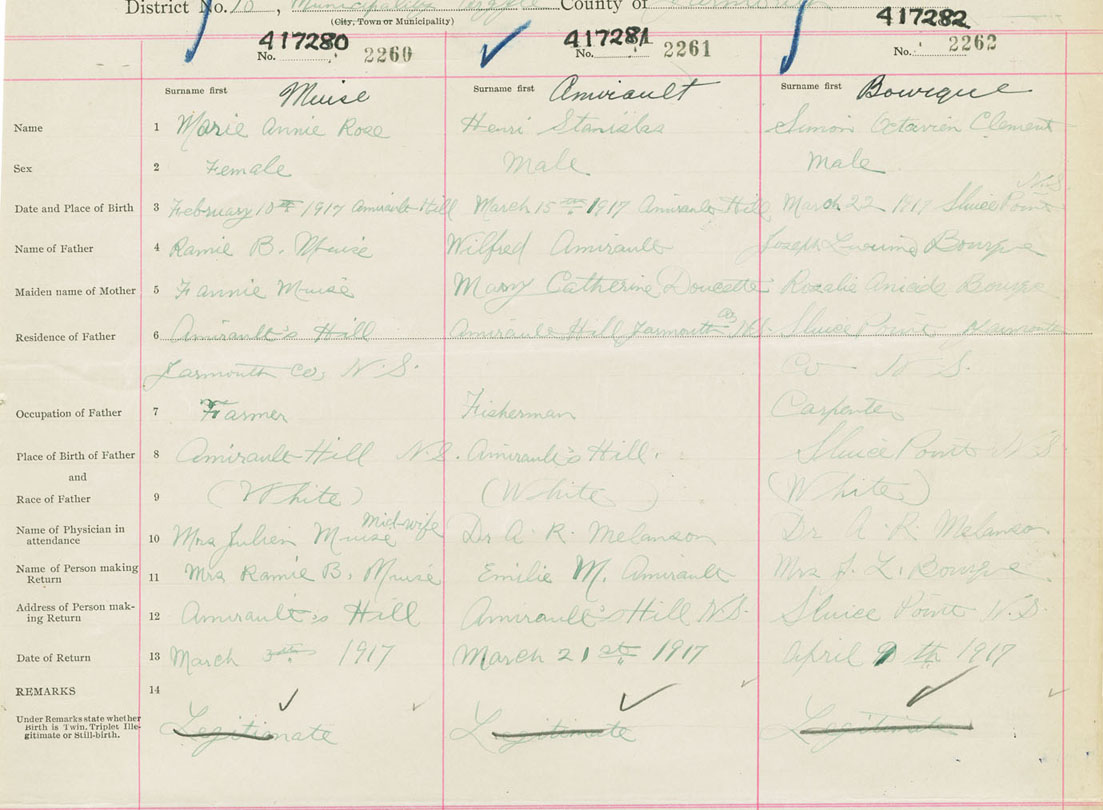 District No. 10, Municipality County of
(City, Town or Municipality)
417280 417281 417282
No. 2260 No. 2261 No. 2262
Surname first Muise Surname first Amirault Surname first Bourque
Name 1 Marie Annie Rose Henri Stanislas Simon Octavien Clement
Sex 2 Female Male Male
N.S.
Date and Place of Birth 3 February 10th 1917 Amirault Hill March 15th 1917 Amirault Hill March 22 1917 Sluice Point
Name of Father 4 Ramie B. Muise Wilfred Amirault Joseph Bourque
Maiden name of Mother 5 Fannie Muise Mary Catherine Doucette Rosalie Bourque
Residence of Father 6 Amirault's Hill Amirault Hill Yarmouth Co N.S. Sluice Point Yarmouth
Yarmouth Co, N.S. Co N.S.
Occupation of Father 7 Farmer Fisherman Carpenter
Place of Birth of Father 8 Amirault Hill N.S. Amirault's Hill. Sluice Point N.S.
and
Race of Father 9 (White) (White) (White)
Name of Physician in
attendance 10 Mrs Julien Muise Mid-wife Dr A. R. Melanson Dr A. R. Melanson
Name of Person making
Return 11 Mrs Ramie B. Muise Emilie M. Amirault Mrs J. L. Bourque
Address of Person mak-
ing Return 12 Amirault's Hill Amirault's Hill N.S. Sluice Point N.S.
Date of Return 13 March 1917 March 21st 1917 April 9th 1917
REMARKS 14
Under Remarks state whether
Birth is Twin, Triplet, Ille-
gitimate or Still-birth.
Legitimate Legitimate Legitimate